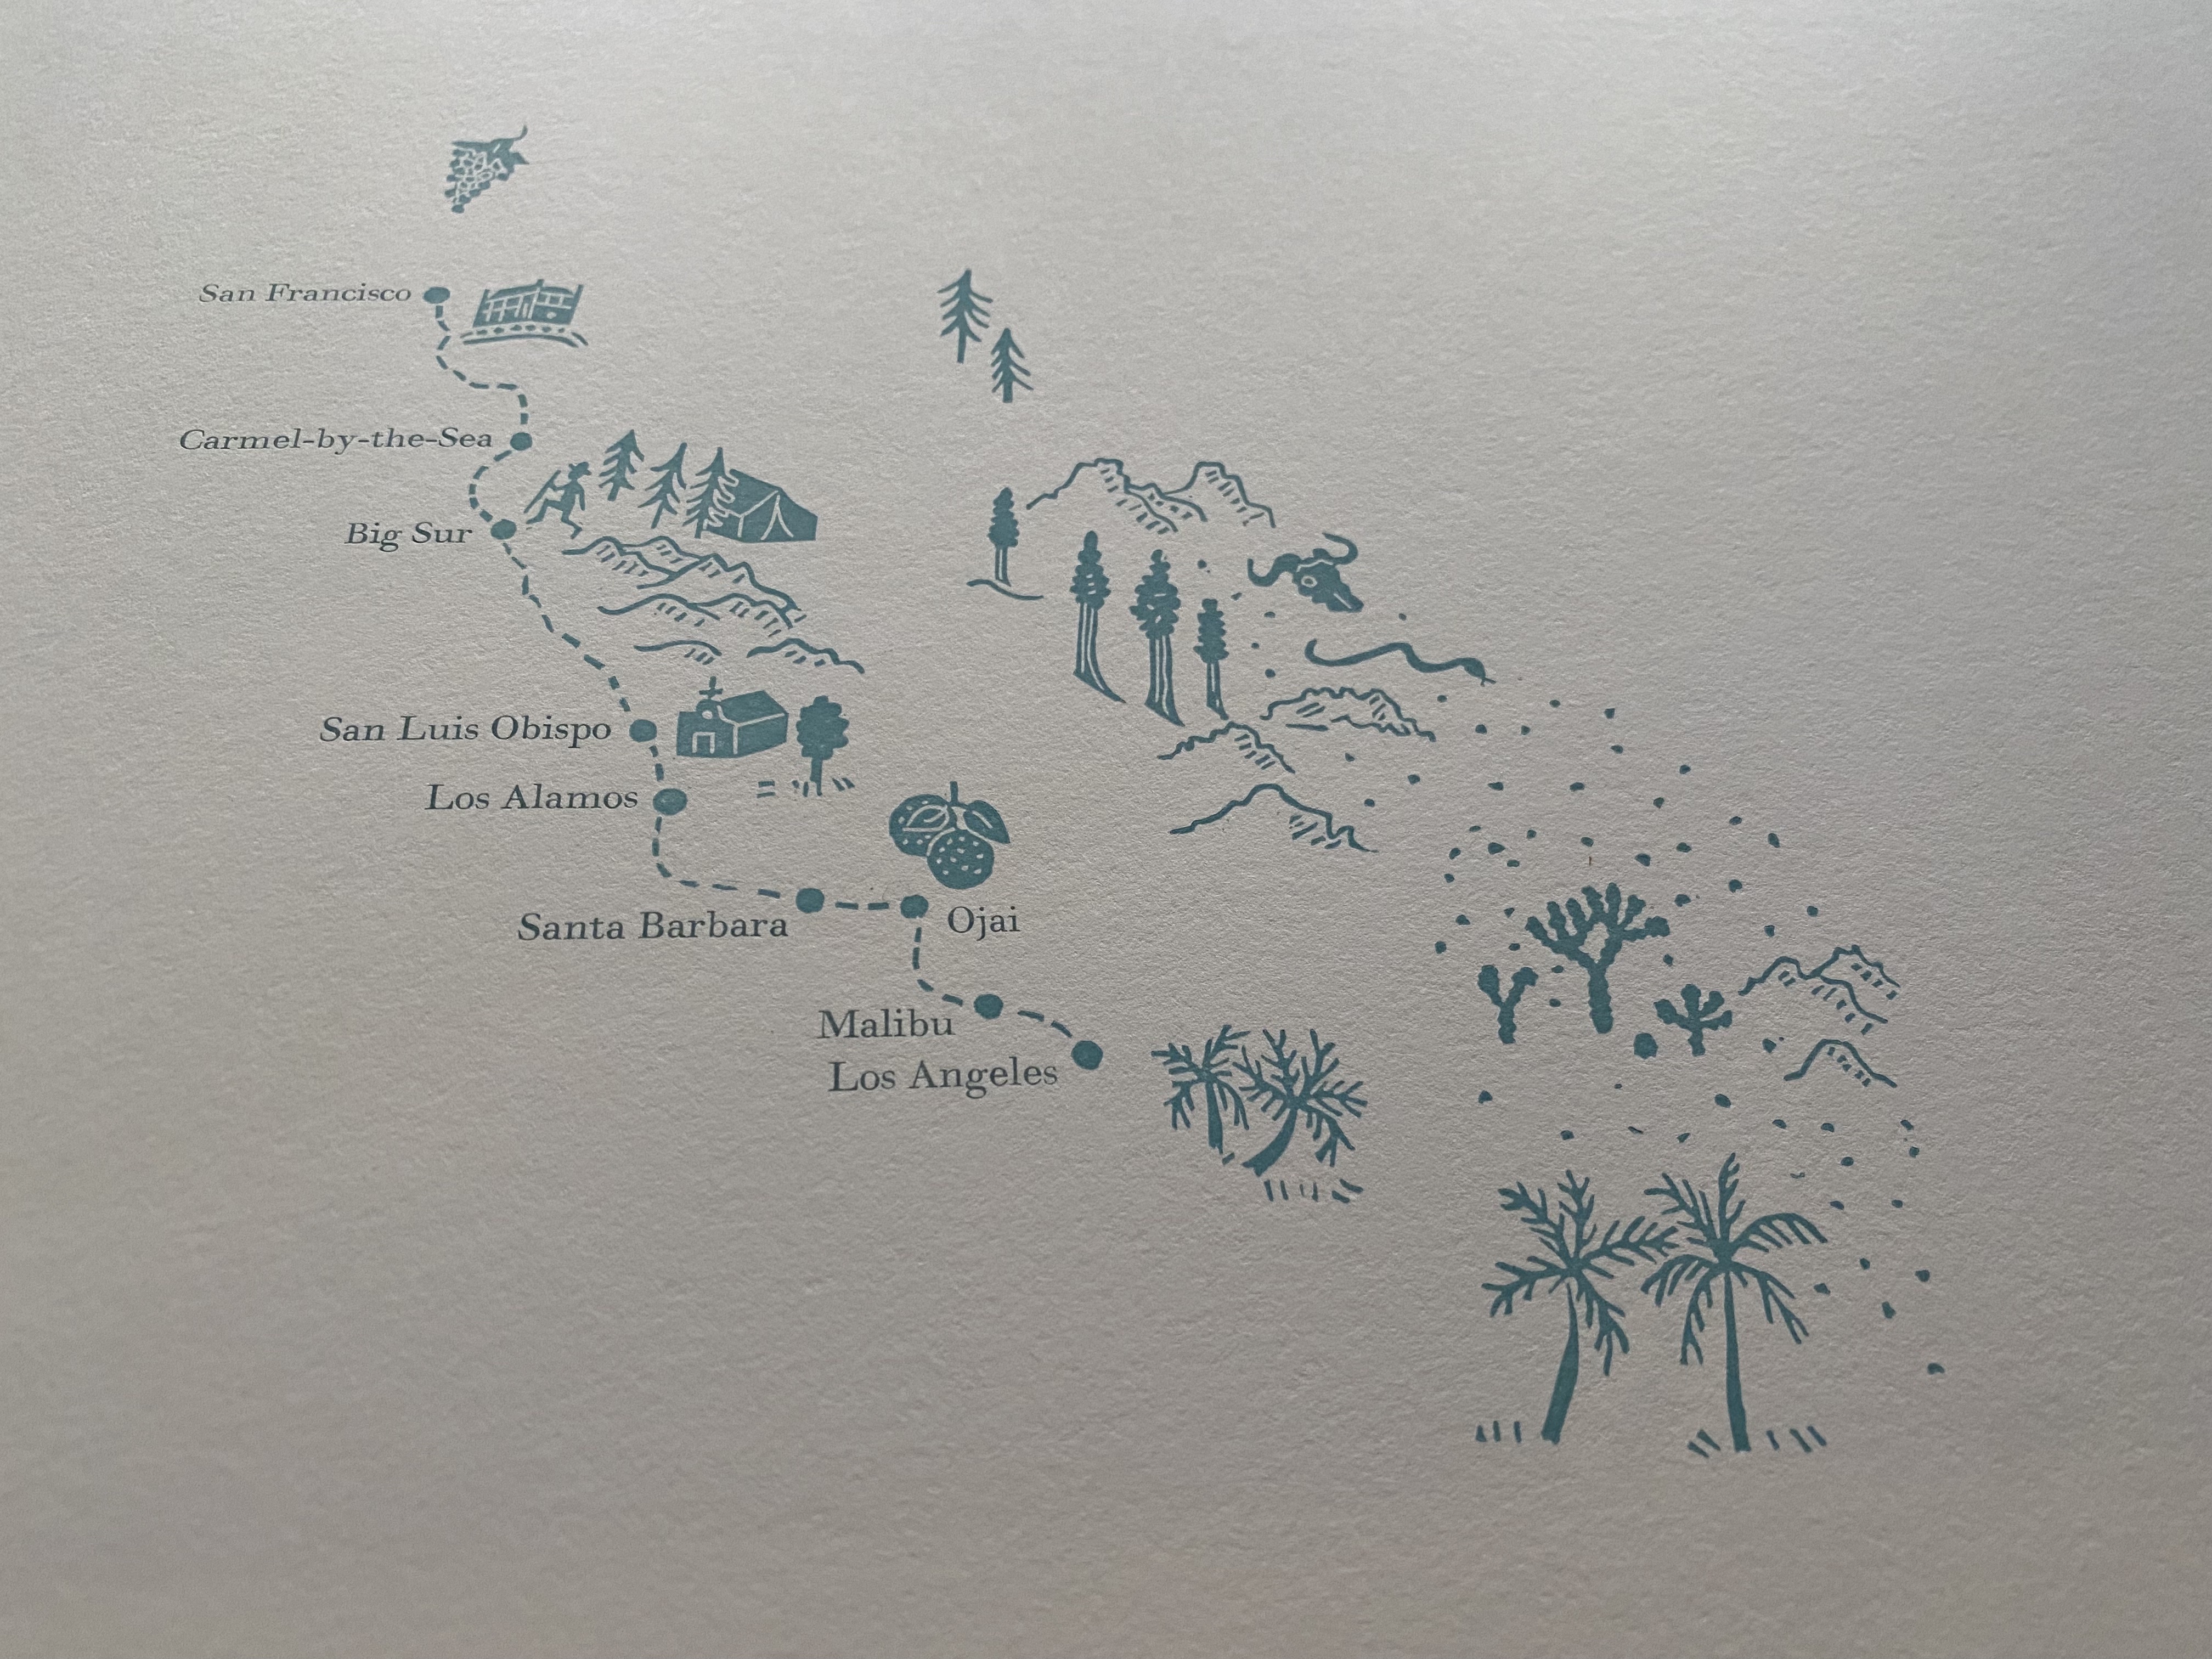 San Francisco
Carmel-by-the-Sea
Big Sur
San Luis Obispo
Los Alamos
Santa Barbara
Ojai
Malibu
Los Angeles